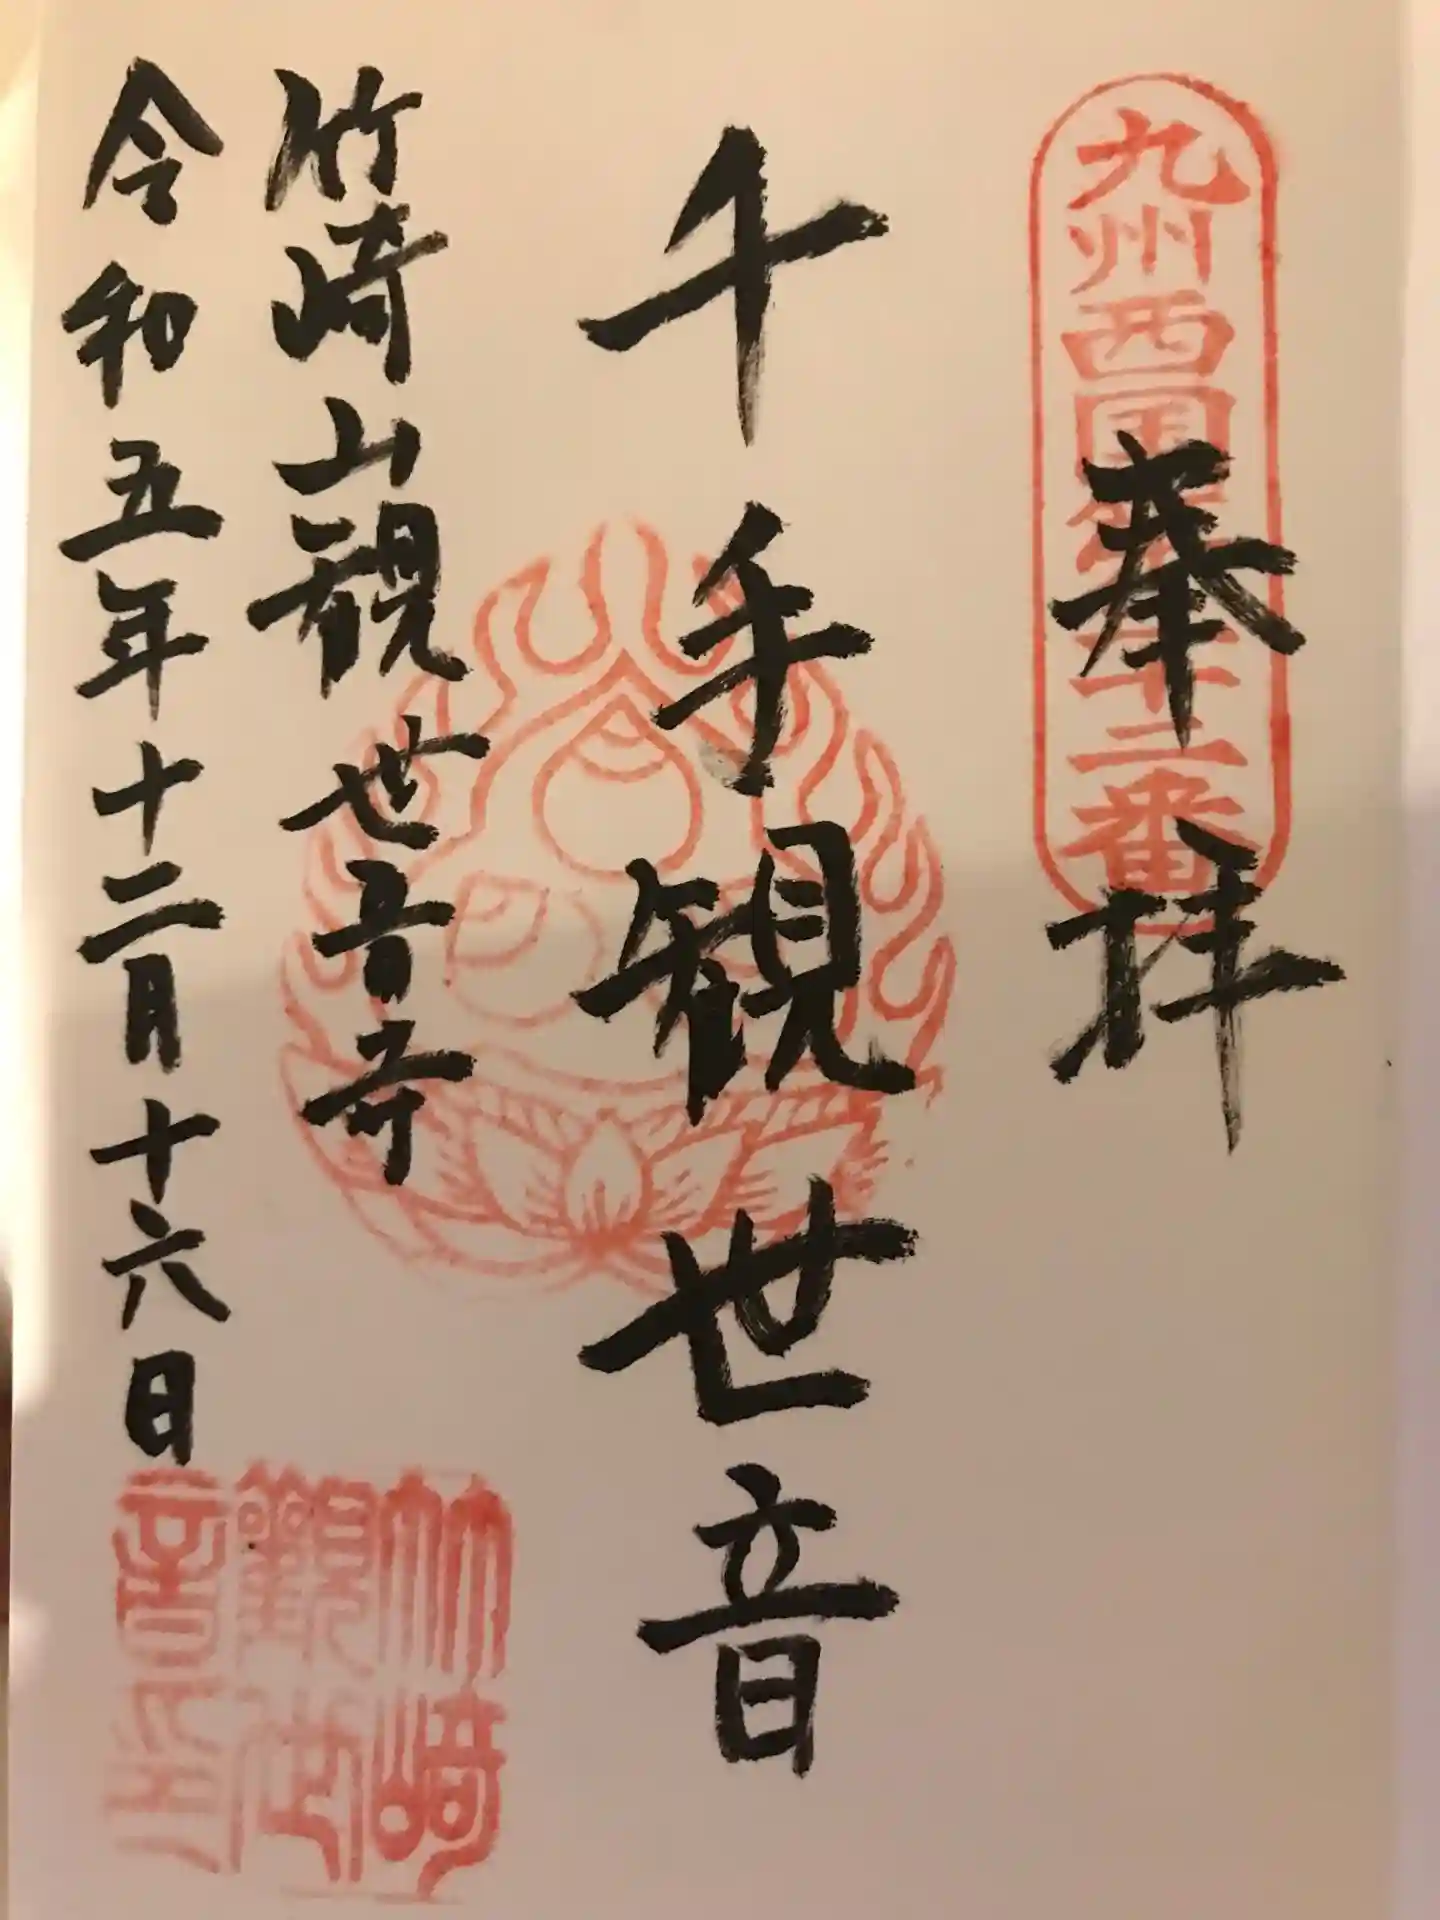 九州西国第二十二番
奉拝
千手観世音
竹崎山観世音寺
令和五年十二月十六日
竹崎
觀世
音印